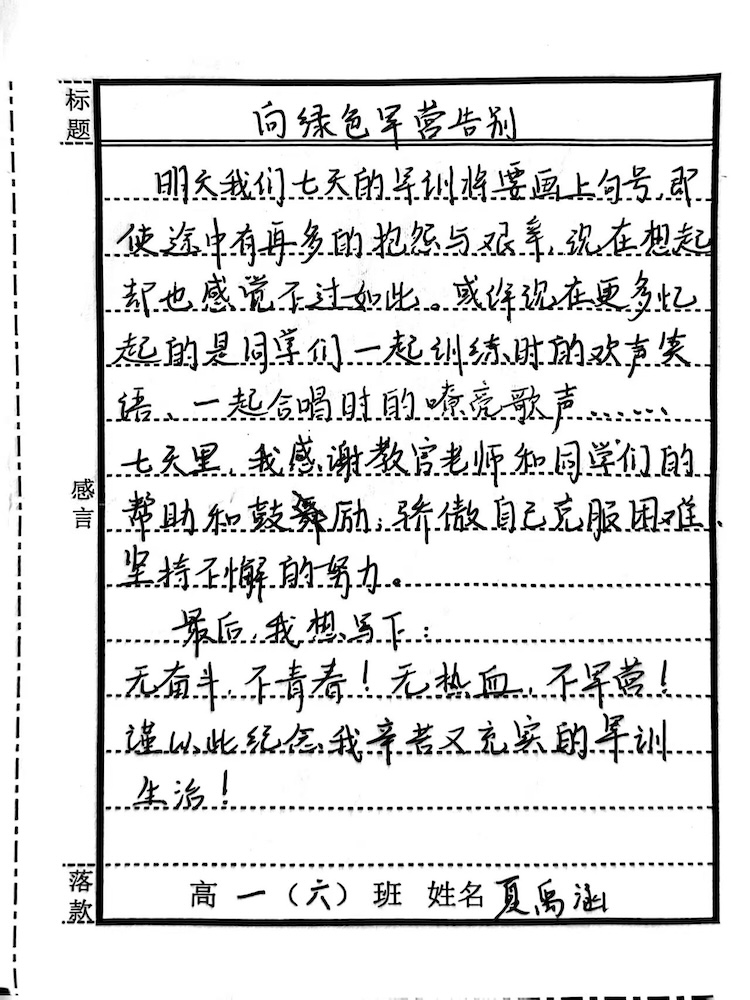 标题
向绿色军营告别
明天我们七天的军训将要画上句号,即
使途中有再多的抱怨与艰辛,现在想起
却也感觉不过如此。或许现在更多忆
起的是同学们一起训练时的欢声笑
语、一起合唱时的嘹亮歌声……
七天里,我感谢教官老师和同学们的
帮助和鼓励;骄傲自己克服困难、
坚持不懈的努力。
最后,我想写下:
无奋斗,不青春!无热血,不军营!
谨以此纪念我辛苦又充实的军训
生活!
感言
落款
高一(六)班 姓名夏禹涵